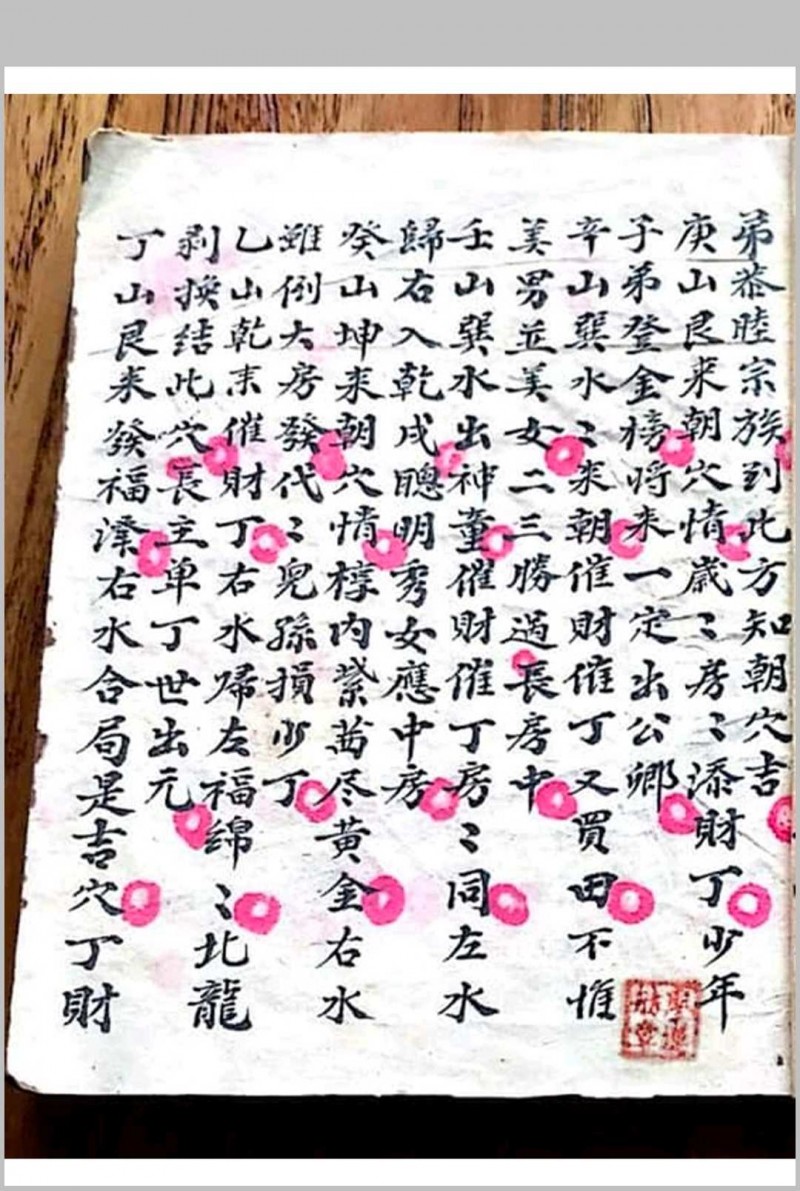 弟恭睦宗族到此方知朝穴吉
庚山艮来朝穴情歳〻房〻添財丁少年
子弟登金榜将来一定出公卿
辛山巽水〻来朝催財催丁又買田不惟
美男並美女二三勝過長房中
壬山巽水出神童催財催丁房〻同左水
歸右入乾戌聰明秀女應中房
癸山坤来朝穴情椁内紫茜尽黄金右水
雖倒大房發代〻兒孫損少丁
乙山乾来催財丁右水歸左福绵〻北龍
剥換结此穴長主单丁世出元
丁山艮来發福深右水合局是吉穴丁財